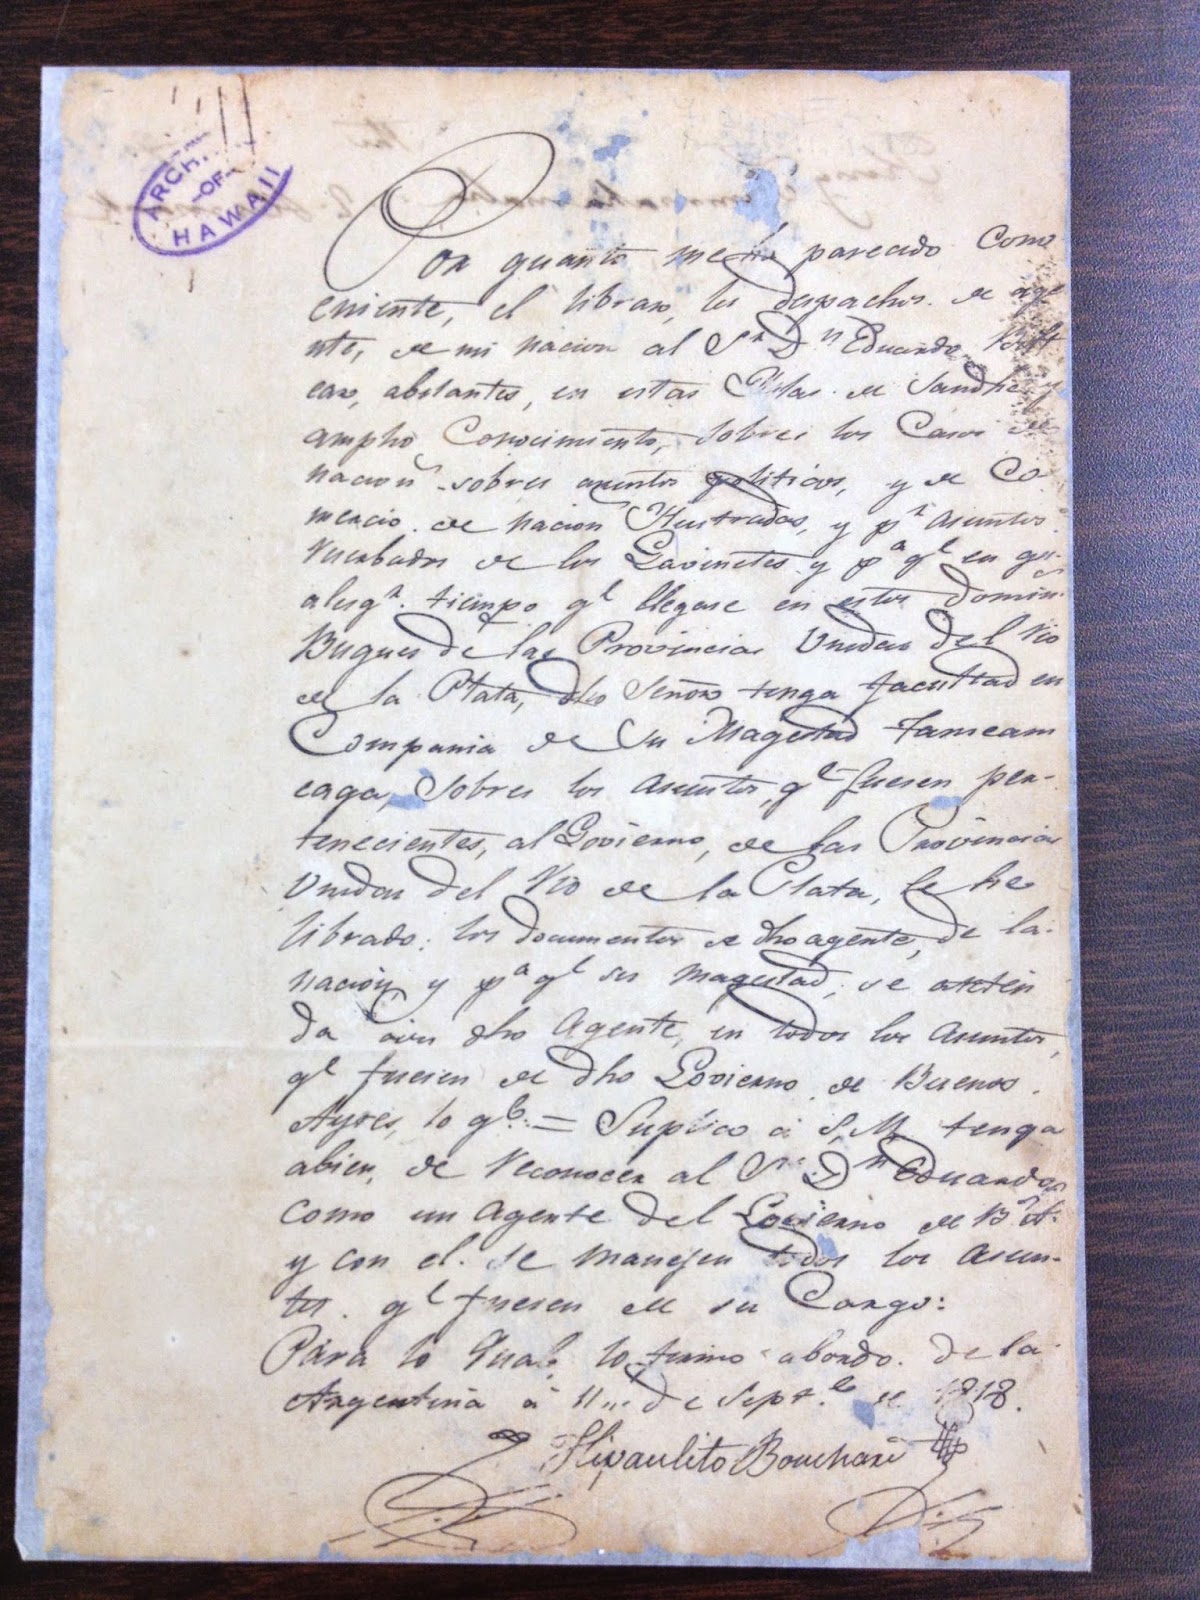 ARCH.
-OF-
HAWAII
Por quanto me ha parecido combe
eniente, el librar, los despachos. de age
nte, de mi nacion al Sr Dn Eduardo
en estas Yslas. de Sandhe y
ampho Conocimiento, sobres los Casos de
nacion sobres asuntos politicos, y de Co
mercio. de nacion Ylustradas, y pr asuntos
de los Gavinetes y pa ql en qu-
alesqr. tiempo ql llegase en estos domin.
Buques de las Provincias Unidas del Rio
de la Plata, dho Señor tenga facultad en
Compania de Su Magestad Tameam
eaga, Sobres los Asuntos, ql fuesen per-
tenecientes, al Govierno, de las Provincias
Unidas del Rio de la Plata, le he
librado: los documentos de dho agente, de la
nación y pa ql su Magestad, se atien
da dho Agente, en todos los Asuntos,
ql fuesen de dho Govierno de Buenos.
Ayres, lo ql. = Suplico á S. M. tenga
abien, de Reconocer al Sr. Dn Eduardo
Como un Agente del Govierno de Bs As.
y con el. se manejen todos los Asun-
tos. ql fuesen de su Cargo:
Pára lo Qual, lo firmo abordo. de la
Argentina á 11... de Septe. de 1818.
Hipaulito Bouchard